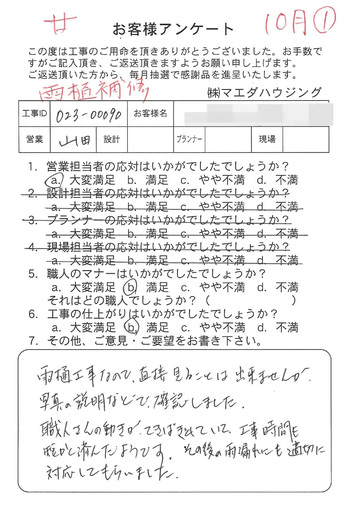 サ
10月①
お客様アンケート
この度は工事のご用命を頂きありがとうございました。お手数で
すがご記入頂き、ご返送頂きますようお願い申し上げます。
ご返送頂いた方から、毎月抽選で感謝品を進呈いたします。
雨樋補修
㈱マエダハウジング
工事ID 023-00090 お客様名
営業 山田 設計 プランナー 現場
1. 営業担当者の応対はいかがでしたでしょうか?
a. 大変満足 b. 満足 c. やや不満 d. 不満
2. 設計担当者の応対はいかがでしたでしょうか?
a. 大変満足 b. 満足 c. やや不満 d. 不満
3. プランナーの応対はいかがでしたでしょうか?
a. 大変満足 b. 満足 c. やや不満 d. 不満
4. 現場担当者の応対はいかがでしたでしょうか?
a. 大変満足 b. 満足 c. やや不満 d. 不満
5. 職人のマナーはいかがでしたでしょうか?
a. 大変満足 b. 満足 c. やや不満 d. 不満
それはどの職人でしょうか? ( )
6. 工事の仕上がりはいかがでしたでしょうか?
a. 大変満足 b. 満足 c. やや不満 d. 不満
7. その他、ご意見・ご要望をお書き下さい。
雨樋工事なので、直接見ることは出来ませんが、
写真の説明などで、確認しました。
職人さんの動きがてきぱきされていて、工事時間も
短かく済んだようです。その後の雨漏れにも適切に
対応してもらいました。